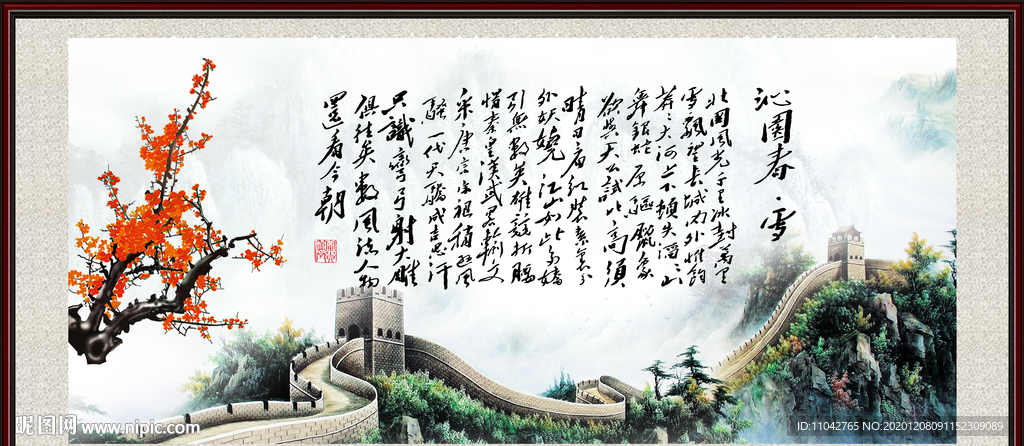 沁園春·雪
北國風光千里冰封萬里
雪飘望长城内外惟餘
莽々大河上下頓失滔々山
舞銀蛇原驅蠟象
欲與天公試比高須
晴日看红装素裹分
外妖嬈江山如此多嬌
引無數英雄競折腰
惜秦皇漢武略輸文
采唐宗宋祖稍遜風
騷一代天驕成吉思汗
只識彎弓射大雕
俱往矣數風流人物
還看今朝
昵图网 www.nipic.com
ID:11042765 NO:20201208091152309089